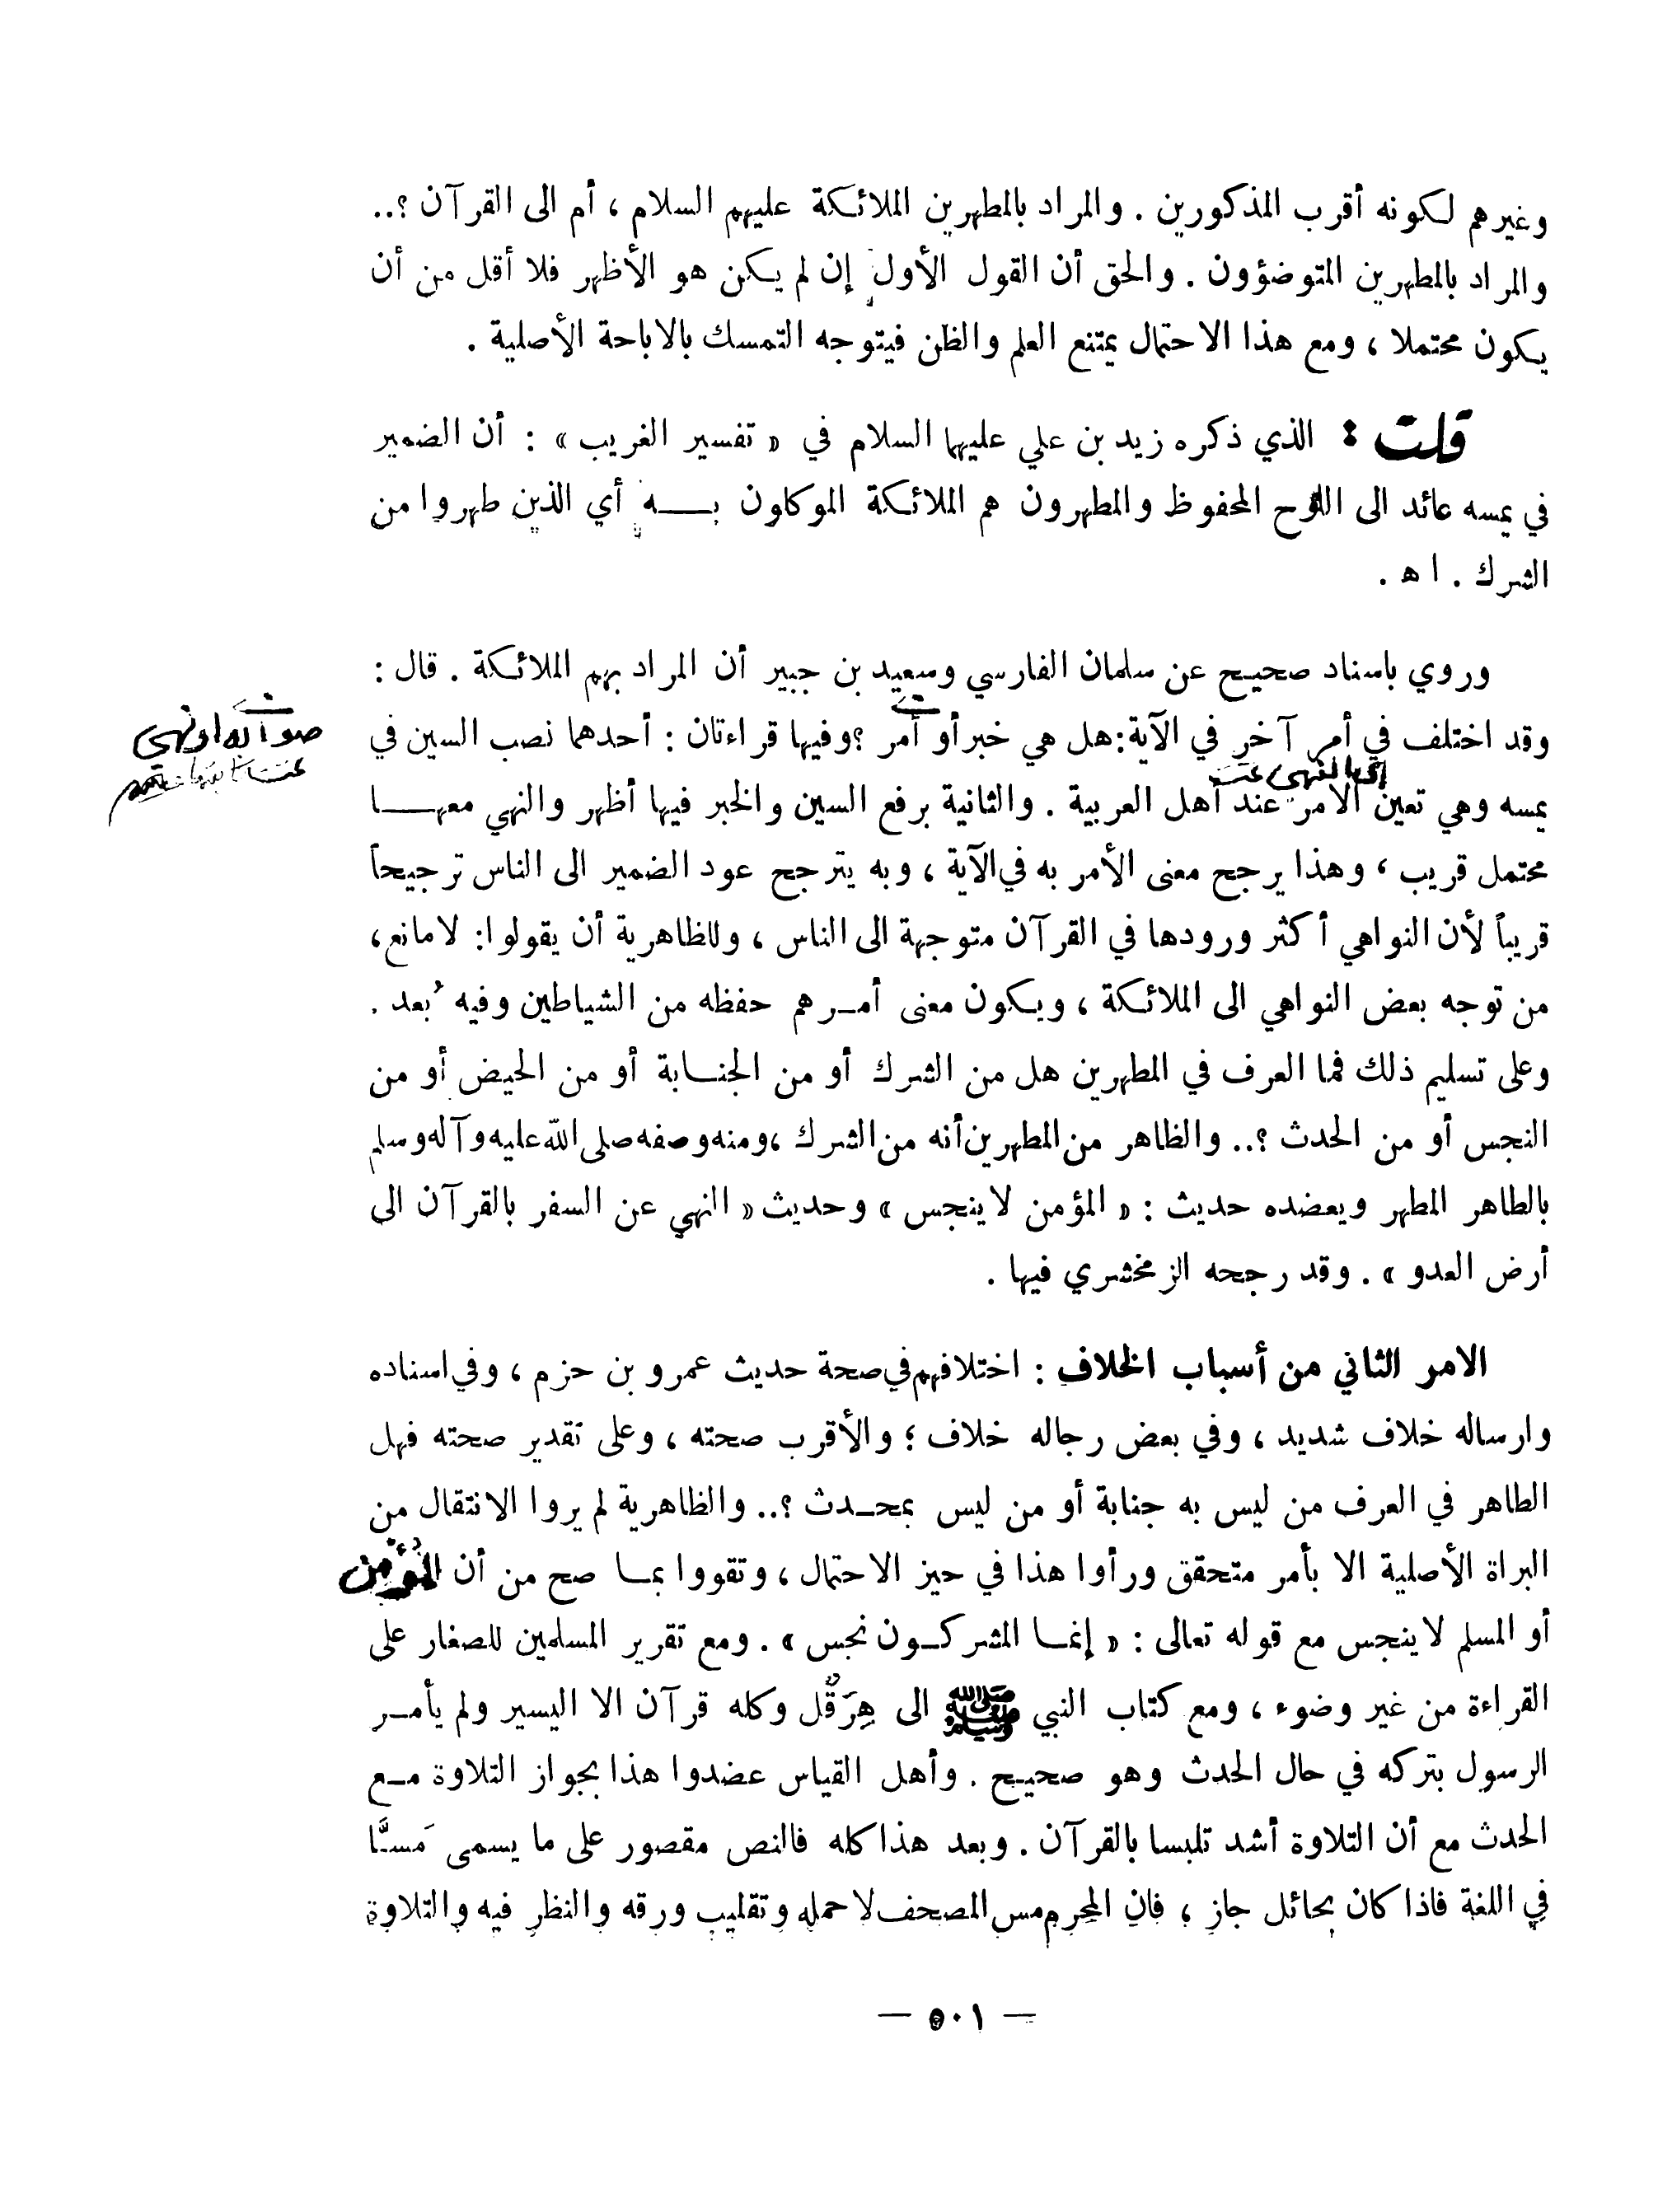 وغيرهم لكونه أقرب المذكورين . والمراد بالمطهرين الملائكة عليهم السلام ، أم الى القرآن ؟..
والمراد بالمطهرين المتوضؤون . والحق أن القول الأول إن لم يكن هو الأظهر فلا أقل من أن
يكون محتملا ، ومع هذا الاحتمال يمتنع العلم والظن فيتوجه التمسك بالاباحة الأصلية .
قلت : الذي ذكره زيد بن علي عليهما السلام في « تفسير الغريب » : أن الضمير
في يمسه عائد الى اللوح المحفوظ والمطهرون هم الملائكة الموكلون به أي الذين طهروا من
الشرك . ا ه .
وروي باسناد صحيح عن سلمان الفارسي وسعيد بن جبير أن المراد بهم الملائكة . قال :
وقد اختلف في أمر آخر في الآية: هل هي خبر أو أمر ؟ وفيها قراءتان : أحدهما نصب السين في
صوابه او نهي
أي النهي
يمسه وهي تعين الامر عند أهل العربية . والثانية برفع السين والخبر فيها أظهر والنهي معها
محتمل قريب ، وهذا يرجح معنى الأمر به في الآية ، وبه يترجح عود الضمير الى الناس ترجيحاً
قريباً لأن النواهي أكثر ورودها في القرآن متوجهة الى الناس ، وللظاهرية أن يقولوا: لا مانع،
من توجه بعض النواهي الى الملائكة ، ويكون معنى أمرهم حفظه من الشياطين وفيه بُعد .
وعلى تسليم ذلك فما العرف في المطهرين هل من الشرك أو من الجنابة أو من الحيض أو من
النجس أو من الحدث ؟.. والظاهر من المطهرين أنه من الشرك ، ومنه وصفه صلى الله عليه وآله وسلم
بالطاهر المطهر ويعضده حديث : « المؤمن لا ينجس » وحديث « النهي عن السفر بالقرآن الى
أرض العدو » . وقد رجحه الزمخشري فيها .
الامر الثاني من أسباب الخلاف : اختلافهم في صحة حديث عمرو بن حزم ، وفي اسناده
وارساله خلاف شديد ، وفي بعض رجاله خلاف ؛ والأقرب صحته ، وعلى تقدير صحته فهل
الطاهر في العرف من ليس به جنابة أو من ليس بمحدث ؟.. والظاهرية لم يروا الانتقال من
البراة الأصلية الا بأمر متحقق ورأوا هذا في حيز الاحتمال ، وتقووا بما صح من أن المؤمن
أو المسلم لا ينجس مع قوله تعالى : « إنما المشركون نجس » . ومع تقرير المسلمين للصغار على
القراءة من غير وضوء ، ومع كتاب النبي ﷺ الى هِرَقْل وكله قرآن الا اليسير ولم يأمر
الرسول بتركه في حال الحدث وهو صحيح . وأهل القياس عضدوا هذا بجواز التلاوة مع
الحدث مع أن التلاوة أشد تلبسا بالقرآن . وبعد هذا كله فالنص مقصور على ما يسمى مَسًّا
في اللغة فاذا كان بحائل جاز ، فان المحرم مس المصحف لا حمله وتقليب ورقه والنظر فيه والتلاوة
— ٥٠١ —